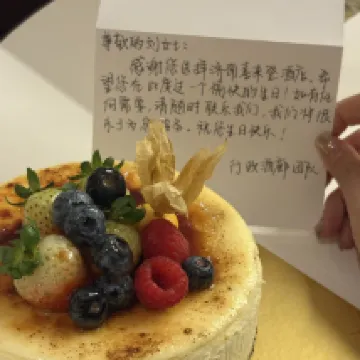 尊敬的刘女士：
感谢您选择济南喜来登酒店，希
望您在此度过一个愉快的生日！如有任
何需要，请随时联系我们，我们将很
乐于为您服务，祝您生日快乐！
行政酒廊团队